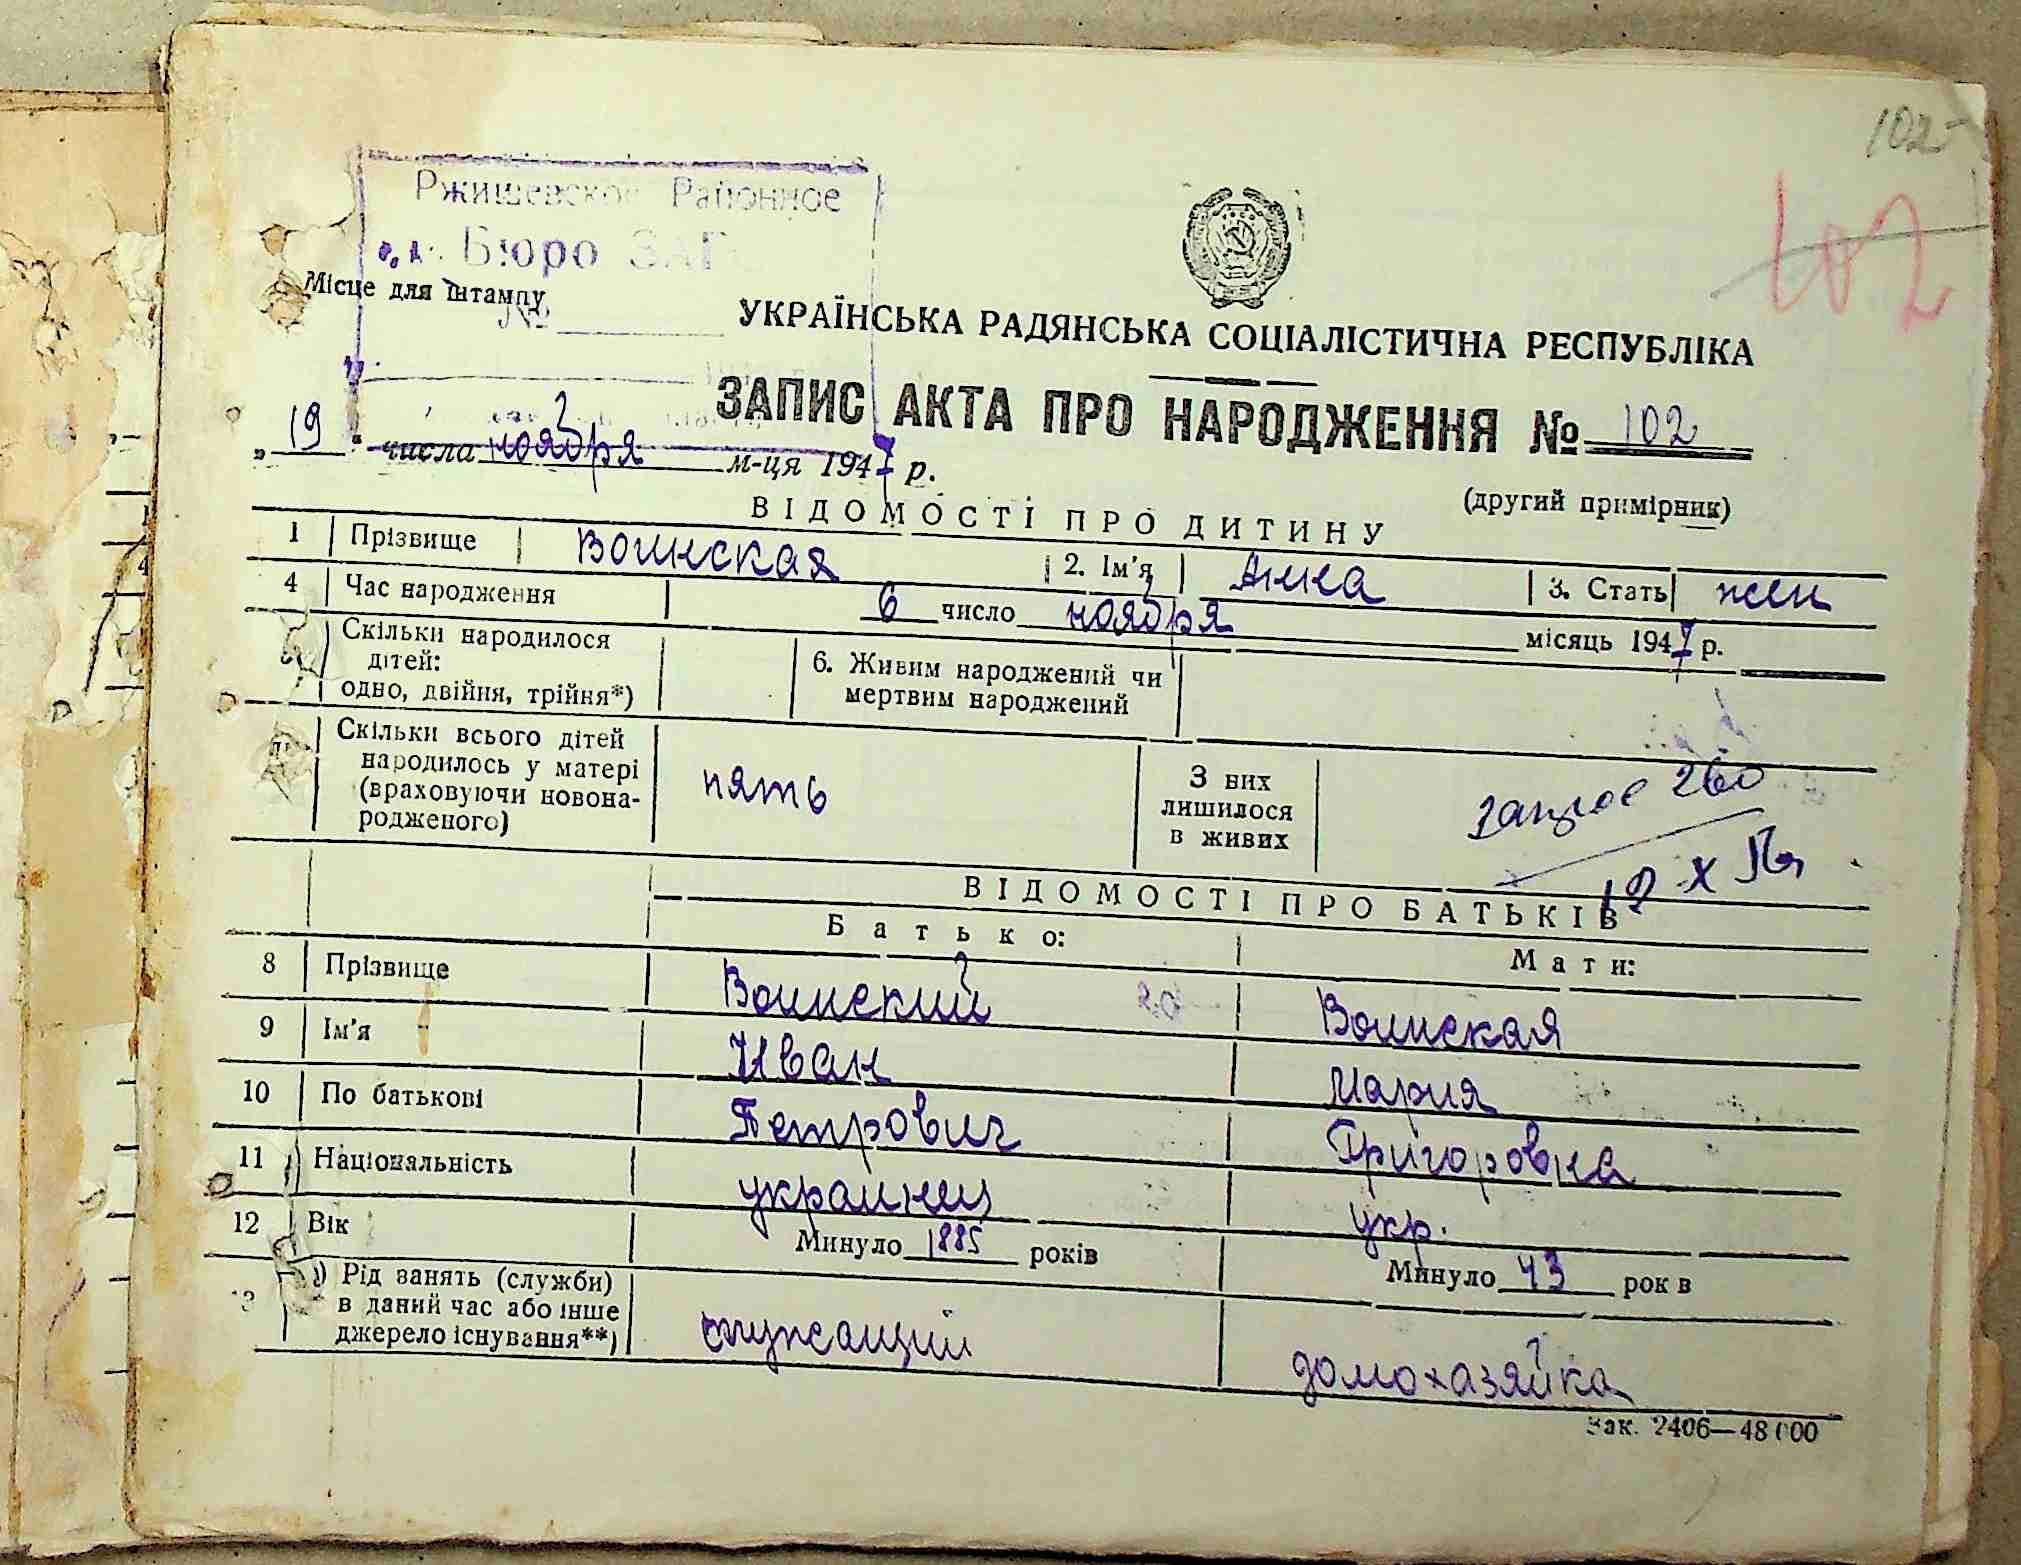 102
102
Ржищевское Районное
Бюро ЗАГС
Місце для штампу
№
УКРАЇНСЬКА РАДЯНСЬКА СОЦІАЛІСТИЧНА РЕСПУБЛІКА
ЗАПИС АКТА ПРО НАРОДЖЕННЯ № 102
„ 19 " числа ноября м-ця 1947 р.
(другий примірник)
ВІДОМОСТІ ПРО ДИТИНУ
1 Прізвище Воинская 2. Ім'я Анна 3. Стать жен
4 Час народження 6 число ноября місяць 1947 р.
Скільки народилося
дітей:
одно, двійня, трійня*)
6. Живим народжений чи
мертвим народжений
Скільки всього дітей
народилось у матері
(враховуючи новона-
родженого)
пять
З них
лишилося
в живих
запрос 260
ВІДОМОСТІ ПРО БАТЬКІВ
Батько: Мати:
8 Прізвище Воинский Воинская
9 Ім'я Иван Мария
10 По батькові Петрович Григоровна
11 Національність украинец укр.
12 Вік Минуло 1885 років Минуло 43 рок в
13 Рід занять (служби)
в даний час або інше
джерело існування**)
служащий домохазяйка
Зак. 2406—48000